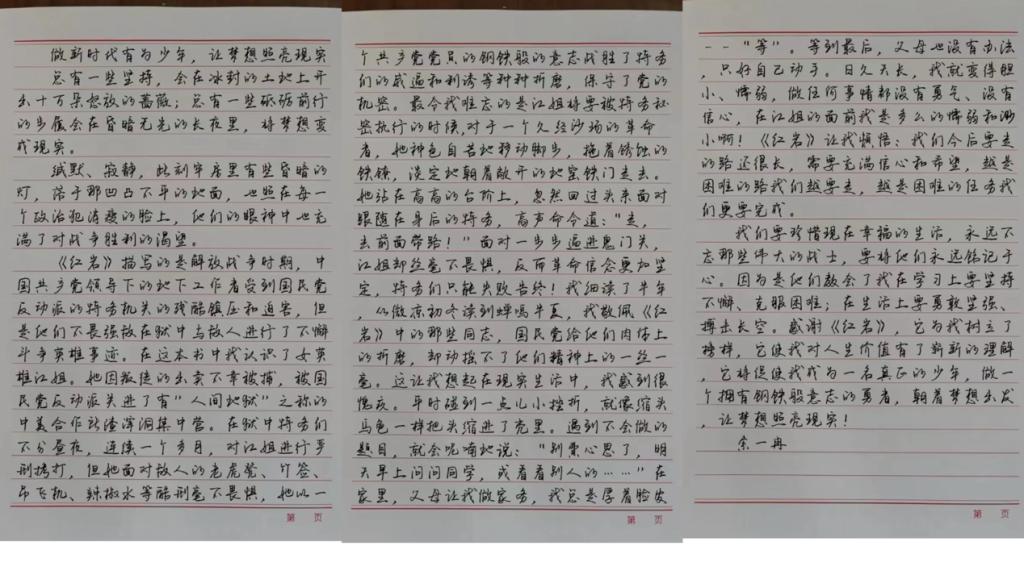 做新时代有为少年，让梦想照亮现实
总有一些坚持，会在冰封的土地上开
出十万朵怒放的蔷薇；总有一些砥砺前行
的步履会在昏暗无光的长夜里，将梦想变
成现实。
缄默、寂静，此刻牢房里有些昏暗的
灯，落于那凹凸不平的地面，也照在每一
个政治犯清瘦的脸上，他们的眼神中也充
满了对战争胜利的渴望。
《红岩》描写的是解放战争时期，中
国共产党领导下的地下工作者受到国民党
反动派的特务机关的残酷镇压和迫害，但
是他们不畏强敌在狱中与敌人进行了不懈
斗争英雄事迹。在这本书中我认识了女英
雄江姐。她因叛徒的出卖不幸被捕，被国
民党反动派关进了有"人间地狱"之称的
中美合作所渣滓洞集中营。在狱中特务们
不分昼夜，连续一个多月，对江姐进行严
刑拷打，但她面对敌人的老虎凳、竹签、
吊飞机、辣椒水等酷刑毫不畏惧，她以一
个共产党党员的钢铁般的意志战胜了特务
们的威逼和利诱等种种折磨，保守了党的
机密。最令我难忘的是江姐将要被特务秘
密执行的时候，对于一个久经沙场的革命
者，她神色自若地移动脚步，拖着锈蚀的
铁镣，淡定地朝着敞开的地窖铁门走去。
她站在高高的台阶上，忽然回过头来面对
跟随在身后的特务，高声命令道："走，
去前面带路！"面对一步步逼进鬼门关，
江姐却丝毫不畏惧，反而革命信念更加坚
定，特务们只能失败告终！我细读了半年
，从微凉初冬读到蝉鸣半夏，我敬佩《红
岩》中的那些同志，国民党给他们肉体上
的折磨，却动摇不了他们精神上的一丝一
毫。这让我想起在现实生活中，我感到很
愧疚。平时碰到一点儿小挫折，就像缩头
乌龟一样把头缩进了壳里。遇到不会做的
题目，就会呢喃地说："别费心思了，明
天早上问问同学，或看看别人的……"在
家里，父母让我做家务，我总是厚着脸皮
--"等"。等到最后，父母也没有办法
，只好自己动手。日久天长，我就变得胆
小、懦弱，做任何事情都没有勇气、没有
信心，在江姐的面前我是多么的懦弱和渺
小啊！《红岩》让我顿悟：我们今后要走
的路还很长，需要充满信心和希望，越是
困难的路我们越要走，越是困难的任务我
们更要完成。
我们要珍惜现在幸福的生活，永远不
忘那些伟大的战士，要将他们永远铭记于
心。因为是他们教会了我在学习上要坚持
不懈、克服困难；在生活上要勇敢坚强、
搏击长空。感谢《红岩》，它为我树立了
榜样，它使我对人生价值有了崭新的理解
，它将促使我成为一名真正的少年，做一
个拥有钢铁般意志的勇者，朝着梦想出发
，让梦想照亮现实！
余一冉
第 页
第 页
第 页